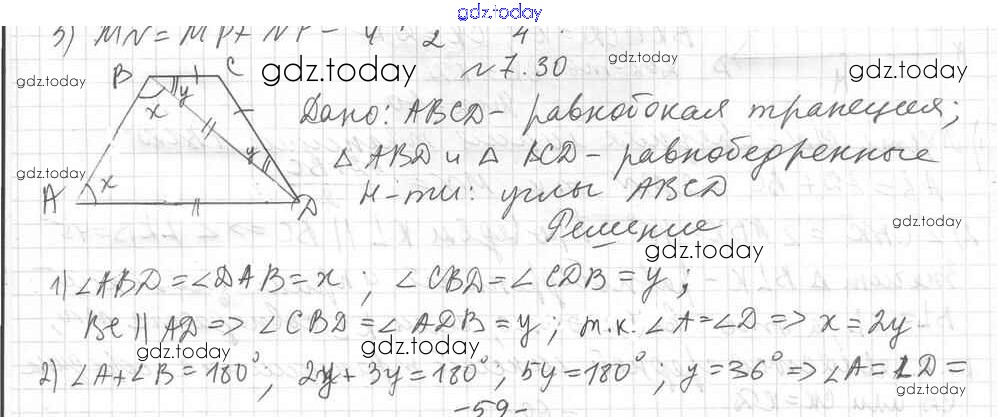 gdz.today
3) MN = MP + NP =
gdz.today
B
C
gdz.today
№ 7.30
gdz.today
x
y
Дано: ABCD - равнобокая трапеция;
y
△ ABD и △ BCD - равнобедренные
gdz.today
A
x
D
Н-ти: углы ABCD
Решение
gdz.today
gdz.today
1) ∠ABD = ∠DAB = x ; ∠CBD = ∠CDB = y ;
BC || AD => ∠CBD = ∠ADB = y ; т.к. ∠A = ∠D => x = 2y
gdz.today
gdz.today
2) ∠A + ∠B = 180°, 2y + 3y = 180°, 5y = 180° ; y = 36° => ∠A = ∠D =
gdz.today
- 59 -